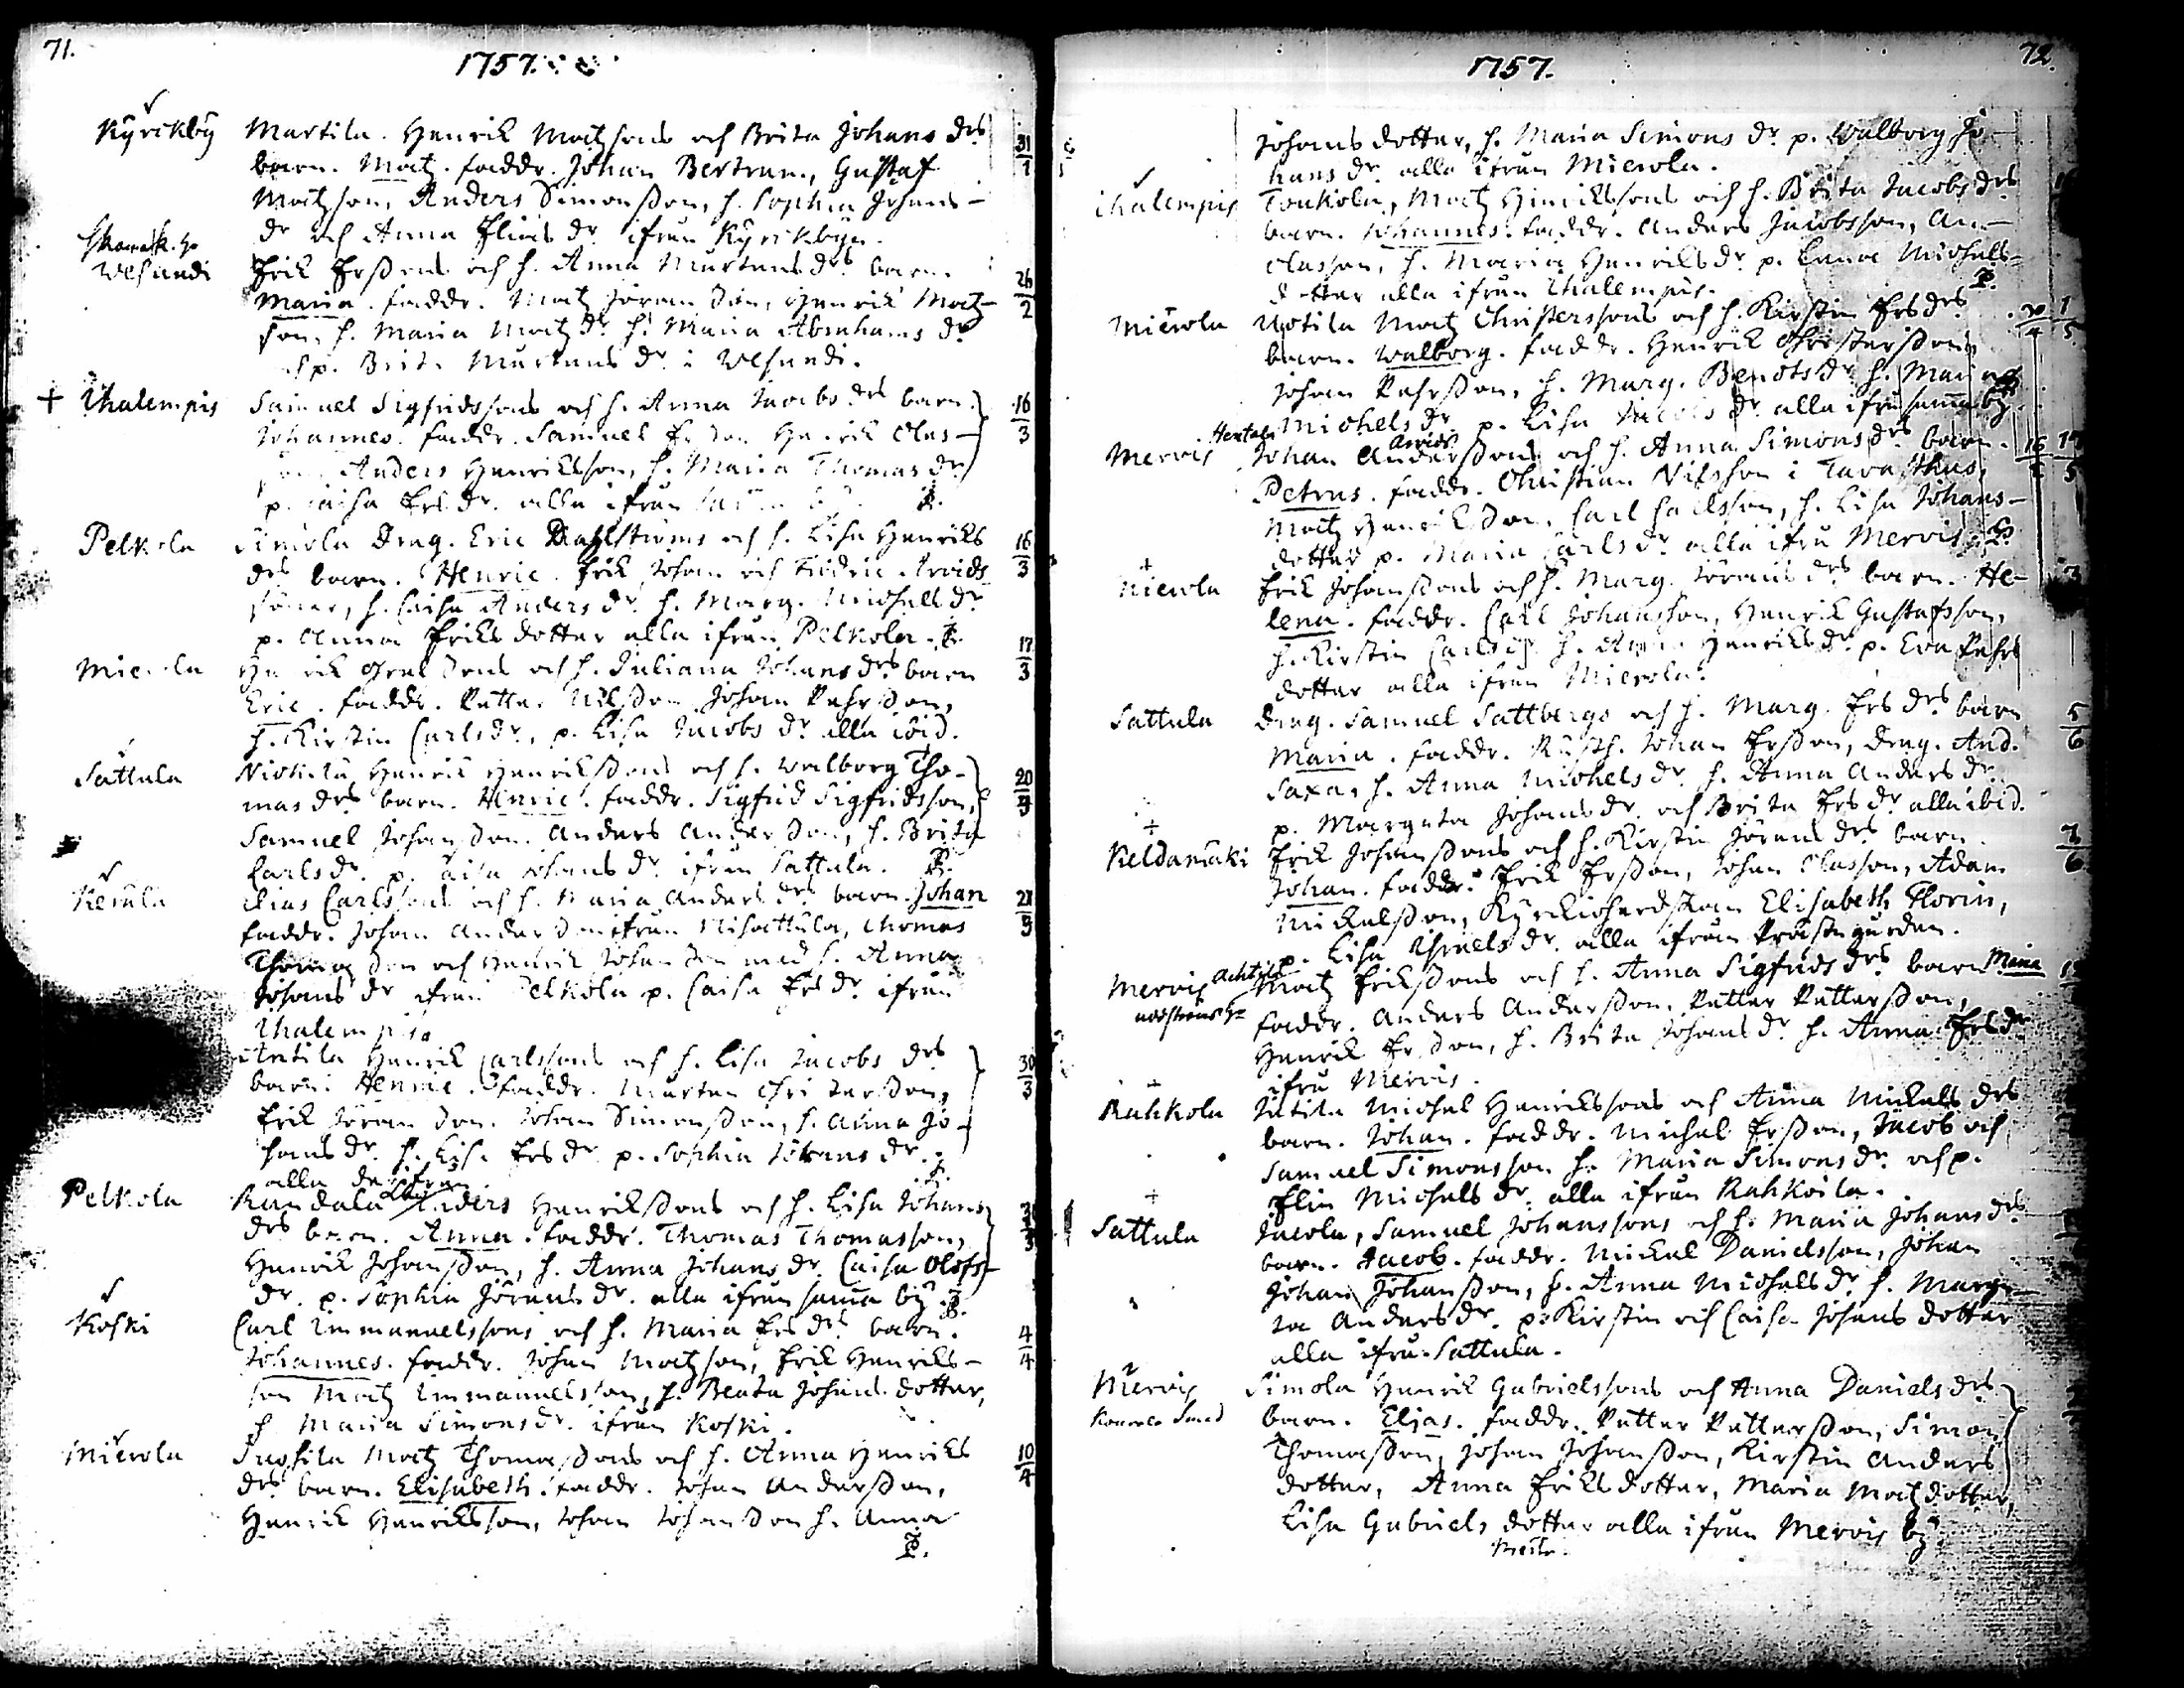 71.
1757.
Kyrckby Martila. Henrik Matzsons och Brita Johans drs 31/1
barn. Matz. faddr. Johan Bertram, Gustaf
Matzson, Anders Simonsson, h. Sophia Johans-
dr och Anna Elias dr ifrån Kyrckbyn.
Wesundi Erik Erssons och h. Anna Mårtens drs barn. 26/2
Maria. faddr. Matz Jöransson, Henrik Matz-
son, h. Maria Matz dr h. Maria Abrahams dr
och p. Brita Mårtens dr i Wesundi.
+ Ihalempis Samuel Sigfridssons och h. Anna Jacobs drs barn. 16/3
Johannes. faddr. Samuel Henrik Clas-
son Anders Henriksson, h. Maria Thomas dr
p. Caisa Ers dr. alla ifrån
Pelkola Simola Drag. Eric Dahlströms och h. Lisa Henriks 16/3
drs barn. Henric. Erik Johan och Fridric Arvids
söner, h. Caisa Anders dr. h. Marg. Michels dr
p. Anna Eriks dotter alla ifrån Pelkola.
Mierola Henrik Grelssons och h. Juliana Johans drs barn 17/3
Eric. faddr. Petter Nilsson Johan Pehrsson,
h. Kirstin Carls dr, p. Lisa Jacobs dr alla ibid.
Sattula Henrik Henrikssons och h. Walborg Tho- 20/3
mas drs barn. Henric. faddr. Sigfrid Sigfridsson,
Samuel Johansson. Anders Andersson, h. Brita
Carls dr. p. Caisa Johans dr. ifrån Sattula.
Kesula Elias Carlssons och h. Maria Anders drs barn. Johan 27/3
faddr. Johan Andersson ifrån Nisattula, Thomas
Thomasson och Henrik Johansson med h. Anna
Johans dr ifrån Pelkola p. Caisa Ers dr. ifrån
Ihalempis.
Antila Henrik Carlssons och h. Lisa Jacobs drs 30/3
barn. Henric. faddr. Mårten Christersson,
Erik Jöransson. Johan Simonsson, h. Anna Jo-
hans dr. h. Lisa Ers dr p. Sophia Johans dr.
alla
Pelkola Kandala Anders Henrikssons och h. Lisa Johans
drs barn. Anna. faddr. Thomas Thomasson,
Henrik Johansson, h. Anna Johans dr. Caisa Olofs-
dr. p. Sophia Jörans dr. alla ifrån samma by.
Koski Carl Immanuelssons och h. Maria Ers drs barn. 4/4
Johannes. faddr. Johan Matzson, Erik Henriks-
son Matz Immanuelsson, h. Beata Johans dotter,
h Maria Simons dr. ifrån Koski.
Mierola Jussila Matz Thomassons och h. Anna Henriks 10/4
drs barn. Elisabeth. faddr. Johan Andersson,
Henrik Henriksson, Johan Johansson h. Anna
72.
1757.
Johans dotter, h. Maria Simons dr p. Walborg Jo-
hans dr. alla ifrån Mierola.
Ihalempis Toukola, Matz Henrikssons och h. Brita Jacobs drs
barn. Johannes. faddr. Anders Jacobsson, An-
Classon, h. Maria Henriks dr p. Lena Michels-
dotter alla ifrån Ihalempis.
Mierola Uotila Matz Christerssons och h. Kirstin Ers drs 1/5
barn. Walborg. faddr. Henrik Christersson,
Johan Pehrsson, h. Marg. Bengts dr h. Maria
Michels dr. p. Lisa Jacobs dr alla ifrån samma by.
Mervis Johan Anderssons och h. Anna Simons drs barn.
Petrus. faddr. Christian Nilsson i Tavasthus,
Matz Henriksson. Carl Carlsson, h. Lisa Johans-
dotter p. Maria Carls dr alla ifrån Mervis.
+
Mierola Erik Johanssons och h. Marg. Jörans drs barn. He-
lena. faddr. Carl Johansson, Henrik Gustafsson,
h. Kirstin Carls dr h. Anna Henriks dr. p. Eva Pehrs
dotter alla ifrån Mierola.
Sattula Drag. Samuel Sattbergs och h. Marg. Ers drs barn 5/6
Maria. faddr. Rusth. Johan Ersson, Drag. And.
Saxa, h. Anna Michels dr h. Anna Anders dr.
p. Margeta Johans dr. och Brita Ers dr alla ibid.
+
Keldamäki Erik Johanssons och h. Kirstin Jörans drs barn
Johan. faddr. Erik Ersson, Johan Classon, Adam
Mickelsson, Elisabeth Florin,
p. Lisa Israels dr. alla ifrån Prästegården.
Mervis Achtila Matz Erikssons och h. Anna Sigfrids drs barn Maria
faddr. Anders Andersson. Petter Pettersson,
Henrik Ersson, h. Brita Johans dr h. Anna Ers dr
ifrån Mervis.
+
Rahkola Michel Henrikssons och Anna Mickels drs
barn. Johan. faddr. Michel Ersson, Jacob och
Samuel Simonsson h. Maria Simons dr. och p.
Elin Michels dr. alla ifrån Rahkoila.
+
Sattula Jacola, Samuel Johanssons och h. Maria Johans drs
barn. Jacob. faddr. Mickel Danielsson, Johan
Johan Johansson, h. Anna Michels dr. h. Marge-
ta Anders dr. p. Kirstin och Caisa Johans dotter
alla ifrån Sattula.
Mervis Simola Henrik Gabrielssons och Anna Daniels drs
barn. Elias. faddr. Petter Pettersson, Simon
Thomasson, Johan Johansson, Kirstin Anders
dotter, Anna Eriks dotter, Maria Matz dotter,
Lisa Gabriels dotter alla ifrån Mervis by.